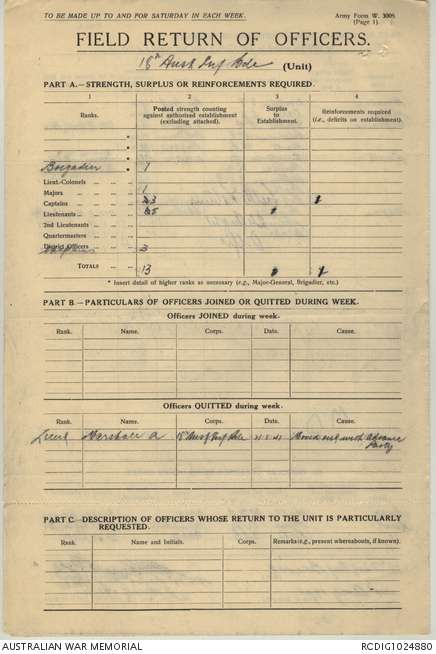 TO BE MADE UP TO AND FOR SATURDAY IN EACH WEEK.
Army Form W. 3008
(Page 1).
FIELD RETURN OF OFFICERS.
18th Aust Inf Bde (Unit)
PART A.—STRENGTH, SURPLUS OR REINFORCEMENTS REQUIRED.
1 2 3 4
Ranks. Posted strength counting against authorised establishment (excluding attached). Surplus to Establishment. Reinforcements required (i.e., deficits on establishment).
*
*
*
Brigadier * 1
Lieut.-Colonels
Majors 1
Captains 3 1
Lieutenants 5
2nd Lieutenants
Quartermasters
District Officers 3
TOTALS 13 1
* Insert detail of higher ranks as necessary (e.g., Major-General, Brigadier, etc.)
PART B.—PARTICULARS OF OFFICERS JOINED OR QUITTED DURING WEEK.
Officers JOINED during week.
Rank. Name. Corps. Date. Cause.
Officers QUITTED during week.
Rank. Name. Corps. Date. Cause.
Lieut Marshall A 18 Aust Inf Bde Moved out with advance Party
PART C.—DESCRIPTION OF OFFICERS WHOSE RETURN TO THE UNIT IS PARTICULARLY REQUESTED.
Rank. Name and Initials. Corps. Remarks (e.g., present whereabouts, if known).
AUSTRALIAN WAR MEMORIAL
RCDIG1024880